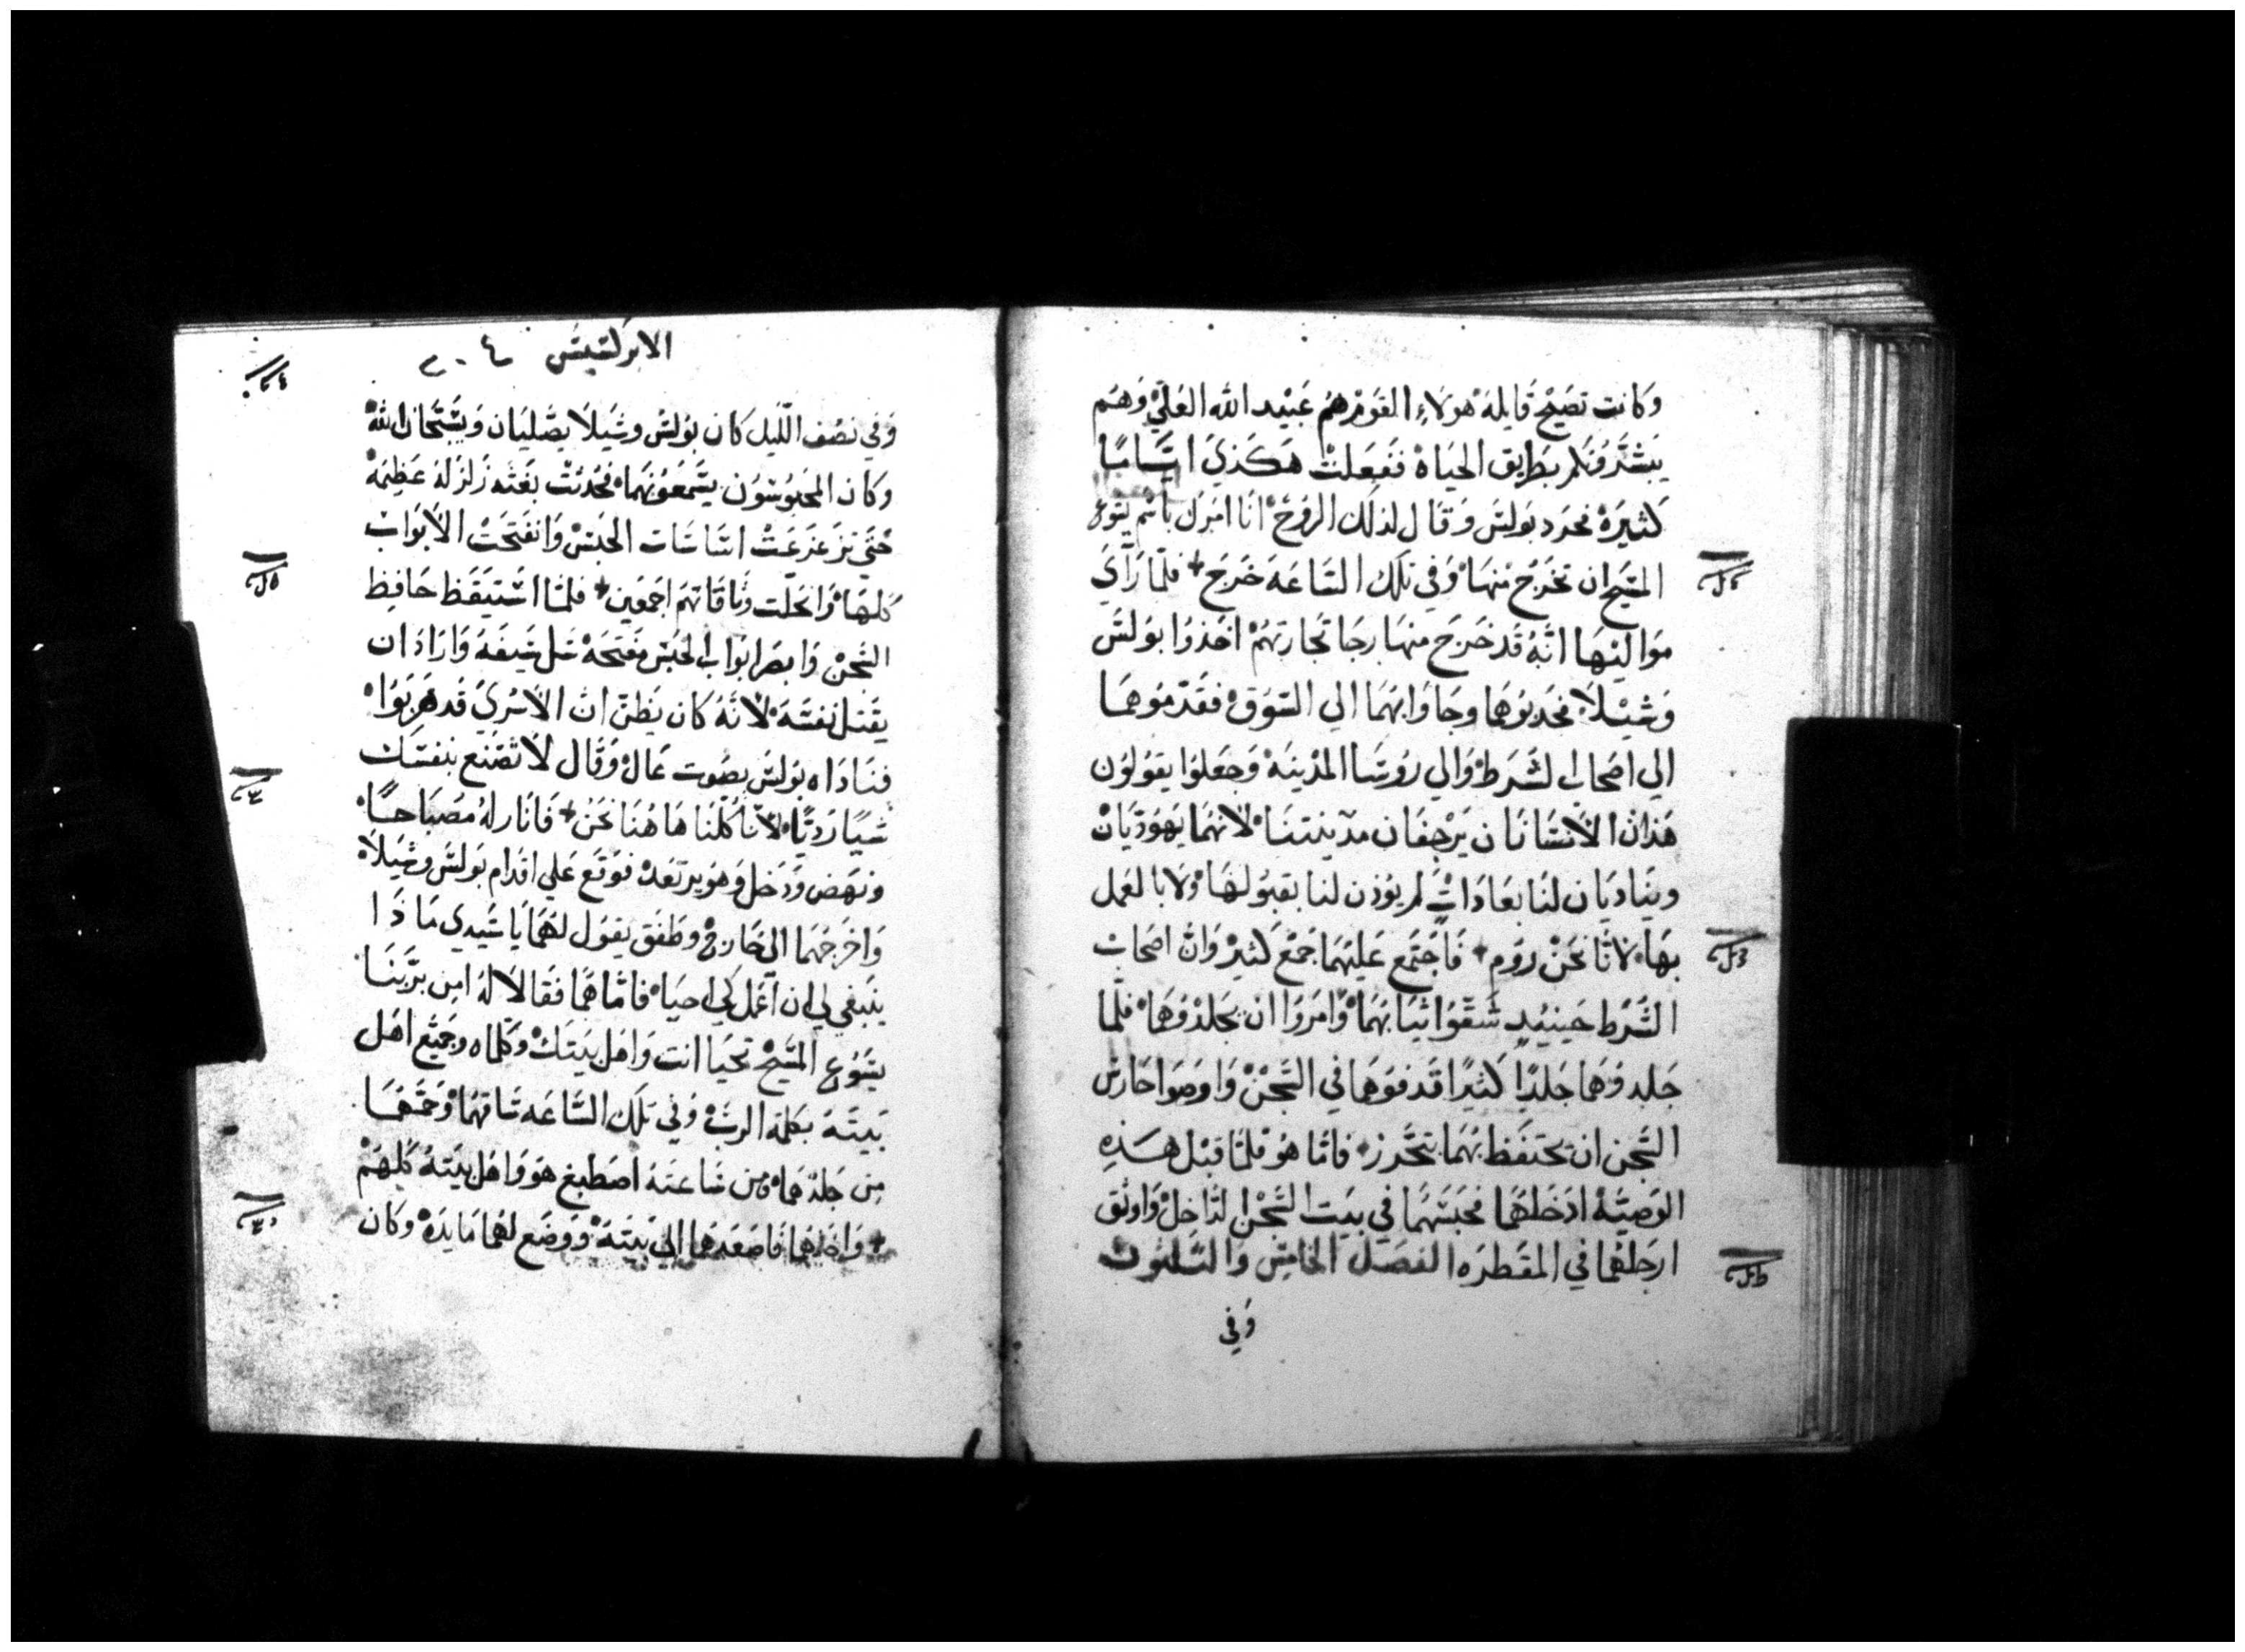 وَكانت تصَيْح قَايلَهْ هولَاءِ القَومْ هُم عَبيْد الله العَليّْ وَهُم
يَبشّرَونَكم بَطريق الحيَاه ففَعَلتْ هَكَذيَ ايَّامًا
كثيرَهْ فحرَد بَولسَ وَقال لذلك الروُحْ انَا امَركْ باسْم يَسُوع
المسَيح ان تخرَج منهَا وَفي تلك السَاعَهَ خرَج فلمّا رَاي
مَواليْهَا انّهُ قَد خَرجَ منهَا رجَا تجَارتهُمْ اخَذوُا بوَلسَ
وَشيْلاَ فجَدبُوهمَا وجَاوَا بهُمَا الي السَوَقْ فقدّموُهمَا
الي اصَحاب الشرَطْ وَالي روُسَا المدْينهْ وَجعَلوُا يقوَلوُن
هَذانْ الاَنسَانَان يَرْجفَان مدَينتنَا لانهُمَا يَهوُدَيانْ
وينَاديَان لنَا بعَادَاتٍ لم يوُذن لنا بقبوُلهَا ولا بالعَمل
بهَا لانّا نحَنْ رَومْ فَاجتمَع عَليْهمَا جَمْعْ كثيرْ وَانْ اصحَابْ
الشرَط حَينيْدٍ شقّوَا ثيَابهُمَا وَامَروَا انْ يجَلدْوُهمَا فلمّا
جَلدوُهمَا جَلدًا كثيرًا قدفوَهمَا في السَجنْ وَاوصَوا حَارسَ
السَجن ان يحتفَظ بهُمَا بتحَرز فامّا هُو فلمّا قبَل هَذهِ
الوَصيّهْ ادخَلهُمَا فحبَسَهُمَا في بيَت السَجْن الدَاخلْ وَاوثق
ارجَلهُمَا في المقطرَه الفصَل الخامسَ وَالتلتوُن
وَفي
الابركسَيسَ ٢٠٤
وَفي نصُف الليْل كان بوُلسَ وشَيلاَ يصَليَان وَيسَبّحَان الله
وَكان المحَبوُسوُن يسَمعَوُنهُمَا فحَدثتْ بغتَه زَلزَلهَ عَظيمَهْ
حَتي تزعَزعَتْ اسَاسَات الحبَسْ وَانفَتحَتْ الاَبوَابْ
كلهَا وَانحَلّت وثاقَاتهمَ اجمعَين فلمّا اسَتيَقَظ حَافظ
السَجنْ وَابصَر ابوَاب الحبَسْ مفتحَهْ سَل سَيفَهُ وَارَادَ ان
يقَتل نفسَهَ لانّهُ كان يَظنّ انْ الاَسْريَ قَد هَربَوُا
فنَادَاه بوُلسَ بصَوُت عَالْ وَقال لاَ تصْنَع بنفسَك
شيًا رَديًا لانّا كُلّنَا هَاهُنَا نحنَ فَانَار لهُ مصَبَاحًا
ونهَض وَدخَل وَهوَ يرتعَدْ فوَقَع عَلي اقدَام بَولسَ وشَيلاَ
وَاخرجَهُمَا الي خَارجْ وطَفَق يقوَل لهُمَا يَا سَيدي مَاذَا
ينبَغي لي ان اعَمل كي احيَا فامّا همَا فقَالاَ لهُ امن برَبنَا
يسَوُع المسَيحْ تحيَا انت وَاهَل بيَتكْ وَكلمَاه وجَميْع اهَل
بَيتهَ بكلمَة الربْ وفي تلك السَاعَه سَاقهُمَا وَحمَمهُمَا
من جَلدْهمَا ومن سَاعتَهَ اصَطبغ هوَ وَاهَل بيَتهُ كُلهُمْ
وَاخذهُمَا فَاصَعَدهُمَا الي بَيتهَ وَوضَع لهُمَا مَايدَهْ وَكان